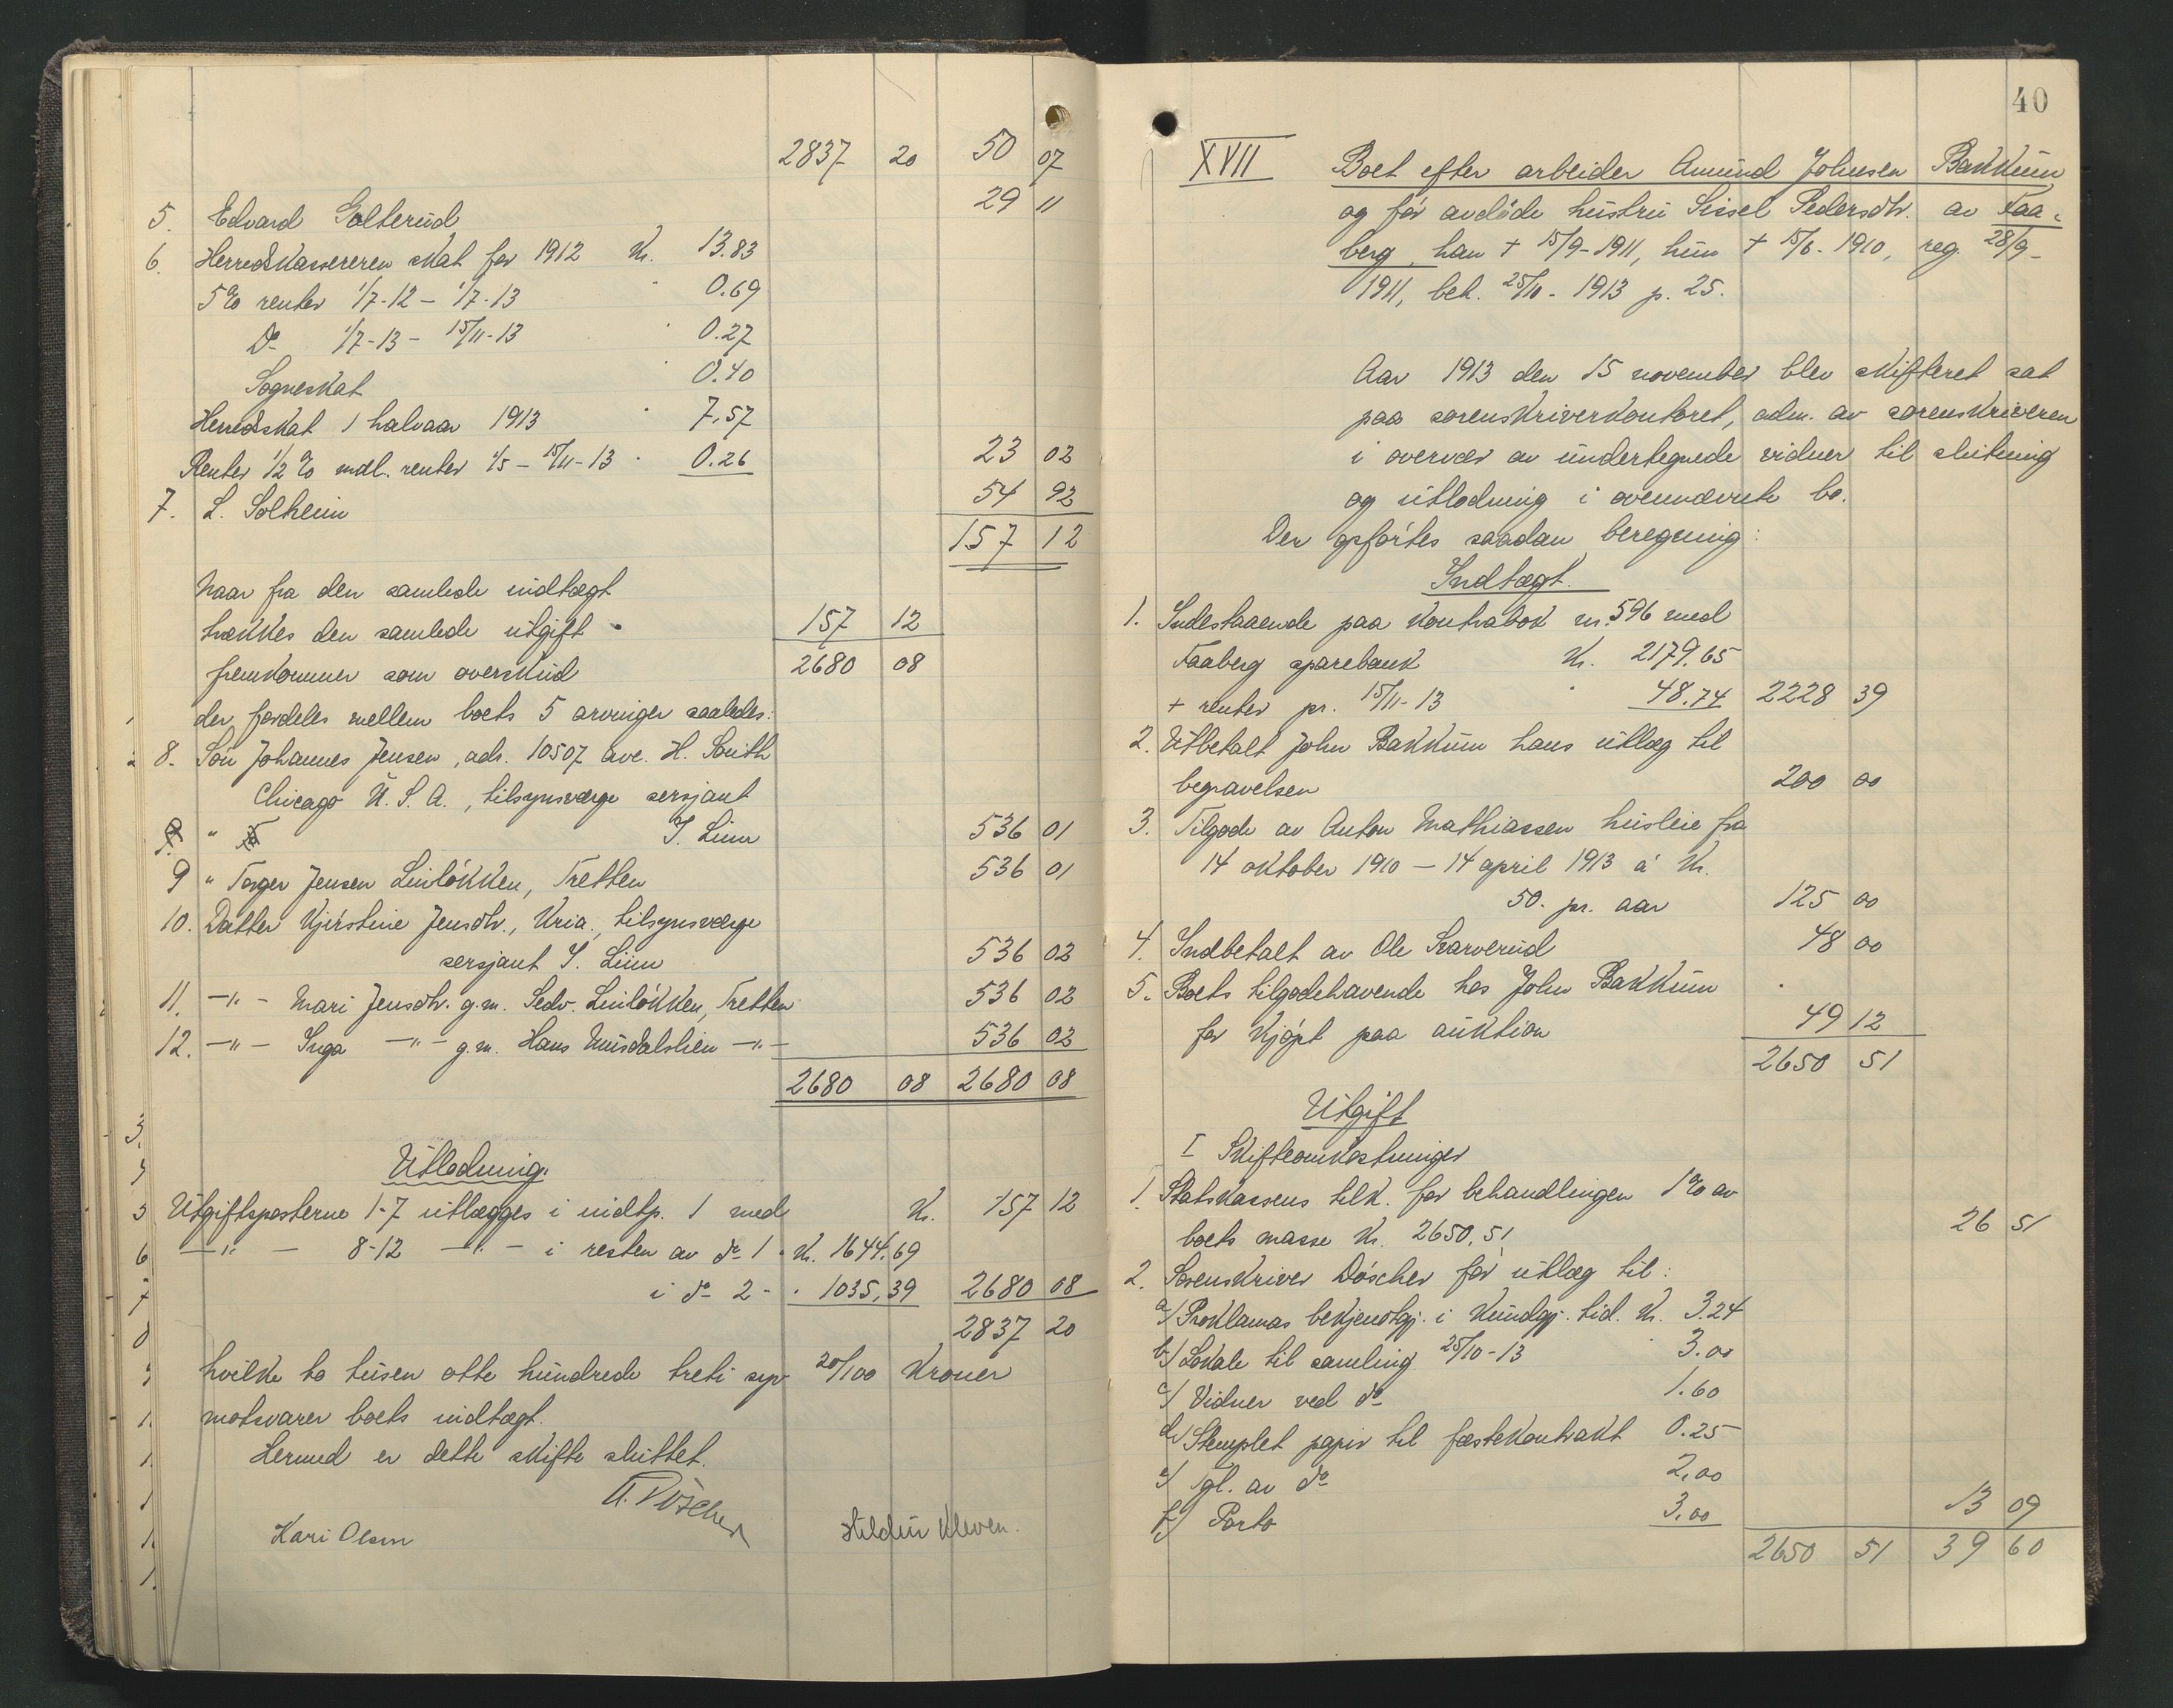 2837 20 50 07
5. Edvard Golterud 29 11
6. Herredskassereren skat for 1912 Kr. 13.83
5% renter 1/7-12 – 1/7-13 " 0.69
Do 1/7-13 – 15/11-13 " 0.27
Sogneskat " 0.40
Herredskat 1 halvaar 1913 " 7.57
Renter 1/2 % mdl. renter 1/5 – 15/11-13 " 0.26 23 02
7. L. Solheim 54 92
157 12
Naar fra den samlede indtægt
trækkes den samlede utgift 157 12
fremkommer som overskud 2680 08
der fordeles mellem boets 5 arvinger saaledes:
8. Søn Johannes Jensen, adr. 10507 ave. H. South
Chicago U.S.A., tilsynsværge sersjant
" I. Linn 536 01
9 " Torger Jensen Linløkken, Tretten 536 01
10. Datter Kjirstine Jensdtr., Kria., tilsynsværge
sersjant I. Linn 536 02
11. –"– Mari Jensdtr. g.m. Sedv. Linløkken, Tretten 536 02
12. –"– Inga –"– g.m. Hans Musdalslien –"– 536 02
2680 08 2680 08
Utlodning.
Utgiftsposterne 1-7 utlægges i indtp. 1 med Kr. 157 12
–"– 8-12 –"– i resten av do 1 . Kr. 1644.69
i do 2 - " 1035,39 2680 08
2837 20
hvilke to tusen otte hundrede treti syv 20/100 kroner
motsvarer boets indtægt.
Hermed er dette skifte sluttet.
A. Döscher
Kari Olsen Hildur Kleven.
40
XVII Boet efter arbeider Amund Johnsen Bakkum
og før avdöde hustru Sissel Pedersdtr. av Faa-
berg, han + 15/9-1911, hun + 15/6-1910, reg. 28/9-
1911, beh. 25/10-1913 p. 25.
Aar 1913 den 15 november blev skifteret sat
paa sorenskriverkontoret, adm. av sorenskriveren
i overvær av undertegnede vidner til slutning
og utlodning i ovennævnte bo.
Der opførtes saadan beregning:
Indtægt.
1. Indestaaende paa kontrabok nr. 596 med
Faaberg sparebank Kr. 2179.65
+ renter pr. 15/11-13 " 48.74 2228 39
2. Utbetalt John Bakkum hans utlæg til
begravelsen 200 00
3. Tilgode av Anton Mathiassen husleie fra
14 oktober 1910 – 14 april 1913 á Kr.
50. pr. aar 125 00
4. Indbetalt av Ole Skarverud 48 00
5. Boets tilgodehavende hos John Bakkum
for kjøpt paa auktion 49 12
2650 51
Utgift
I Skifteomkostninger
1. Statskassens tilk. for behandlingen 1% av
boets masse Kr. 2650,51 26 51
2. Sorenskriver Döscher for utlæg til:
a/ Proklamas bekjendtgj. i Kundgj. tid. Kr. 3.24
b/ Lokale til samling 25/10-13 " 3.00
c/ Vidner ved do 1.60
d/ Stemplet papir til fæstekontrakt 0.25
e/ Tgl. av do 2,00
f/ Porto 3,00 13 09
2650 51 39 60